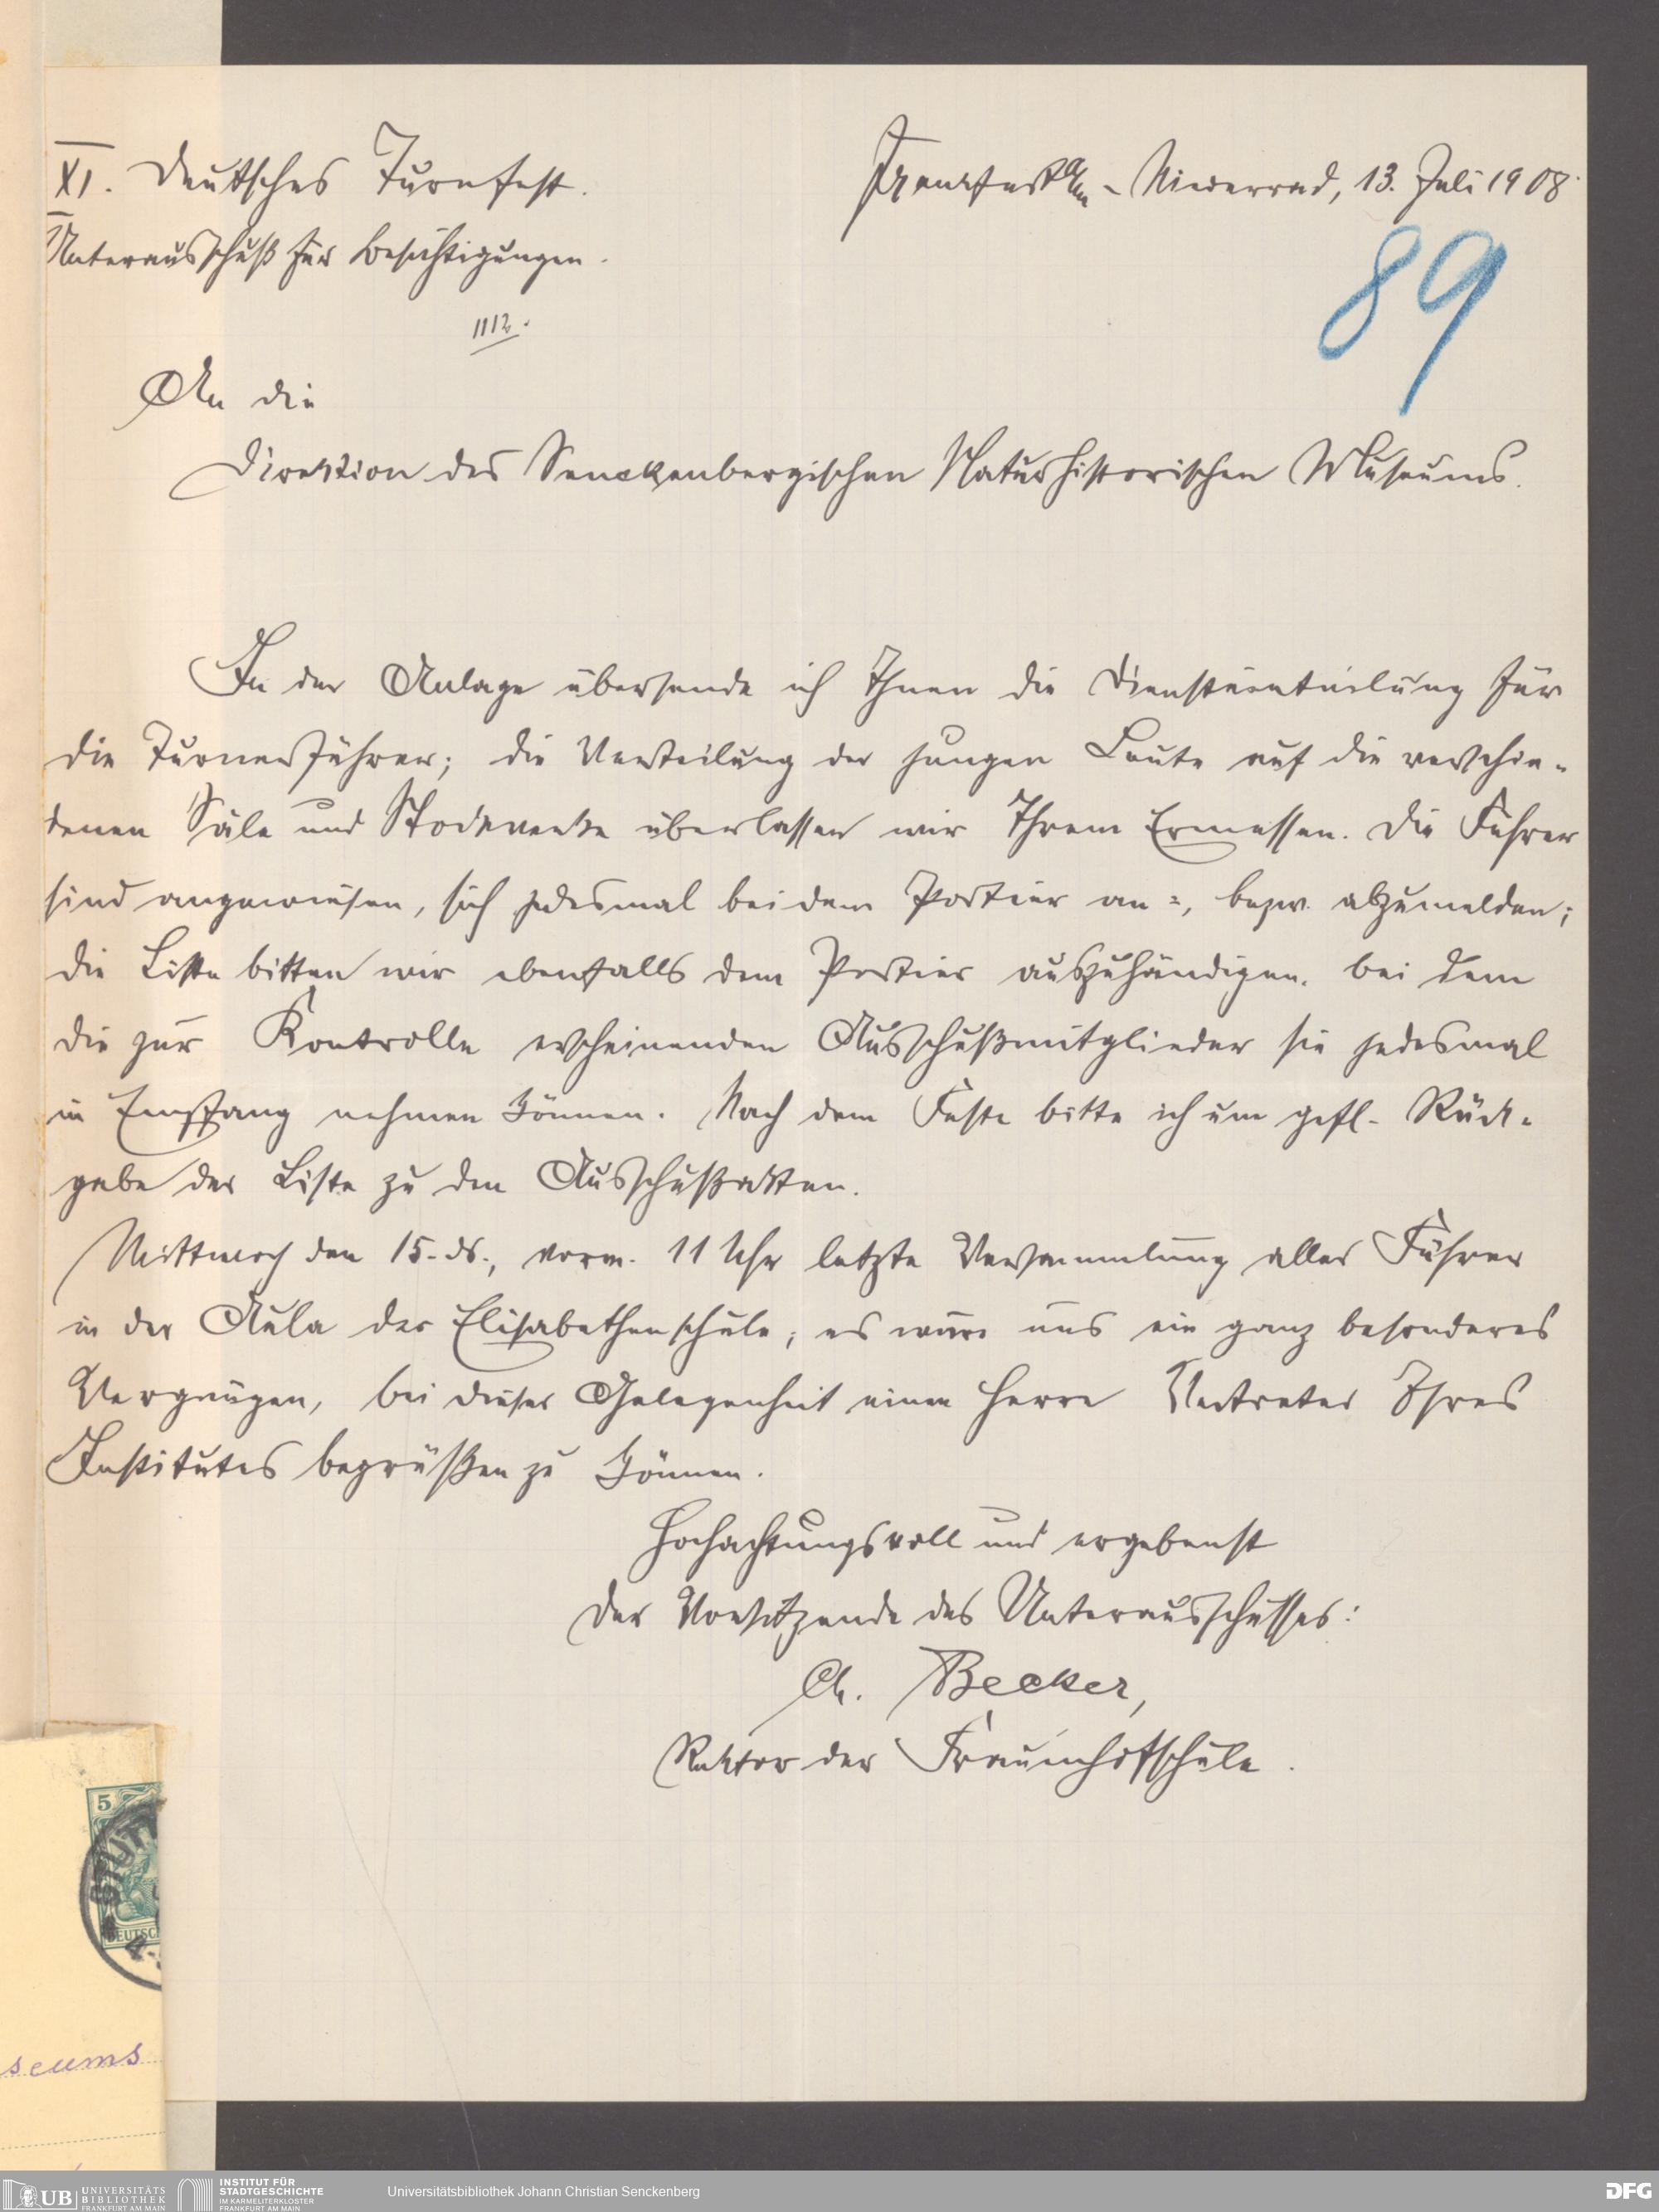 XI. Deutsches Turnfest.
Frankfurt a/m - Niederrad, 13. Juli 1908.
Unterausschuß für Besichtigungen.
89
1112.
An die
Direktion des Senckenbergischen Naturhistorischen Museums.
In der Anlage übersende ich Ihnen die Diensteinteilung für
die Turnerführer; die Verteilung der jungen Leute auf die verschie-
denen Säle und Stockwerke überlassen wir Ihrem Ermessen. Die Führer
sind angewiesen, sich jedesmal bei dem Portier an-, bezw. abzumelden;
die Liste bitten wir ebenfalls dem Portier auszuhändigen, bei dem
die zur Kontrolle erscheinenden Ausschußmitglieder sie jedesmal
in Empfang nehmen können. Nach dem Feste bitte ich um gefl. Rück-
gabe der Liste zu den Ausschußakten.
Mittwoch den 15. ds., vorm. 11 Uhr letzte Versammlung aller Führer
in der Aula der Elisabethenschule; es wäre uns ein ganz besonderes
Vergnügen, bei dieser Gelegenheit einen Herrn Vertreter Ihres
Institutes begrüßen zu können.
Hochachtungsvoll und ergebenst
Der Vorsitzende des Unterausschusses:
Ch. Becker,
Rektor der Frauenhofschule.
5
DEUTSC
seums
UB UNIVERSITÄTS
BIBLIOTHEK
FRANKFURT AM MAIN
INSTITUT FÜR
STADTGESCHICHTE
IM KARMELITERKLOSTER
FRANKFURT AM MAIN
Universitätsbibliothek Johann Christian Senckenberg
DFG